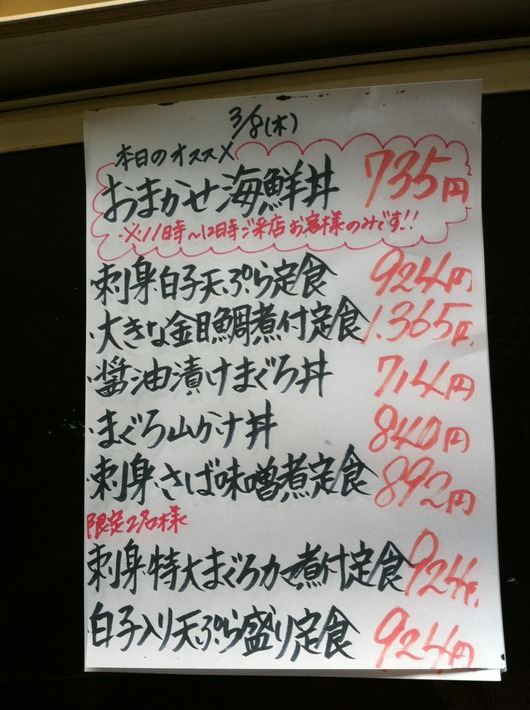 3/8(木)
本日のオススメ
おまかせ海鮮丼 735円
※11時〜12時ご来店お客様のみです!!
・刺身白子天ぷら定食 924円
・大きな金目鯛煮付定食 1.365円
・醤油漬けまぐろ丼 714円
・まぐろ山かけ丼 840円
・刺身さば味噌煮定食 892円
限定2名様
刺身特大まぐろカマ煮付定食 924円
白子入り天ぷら盛り定食 924円